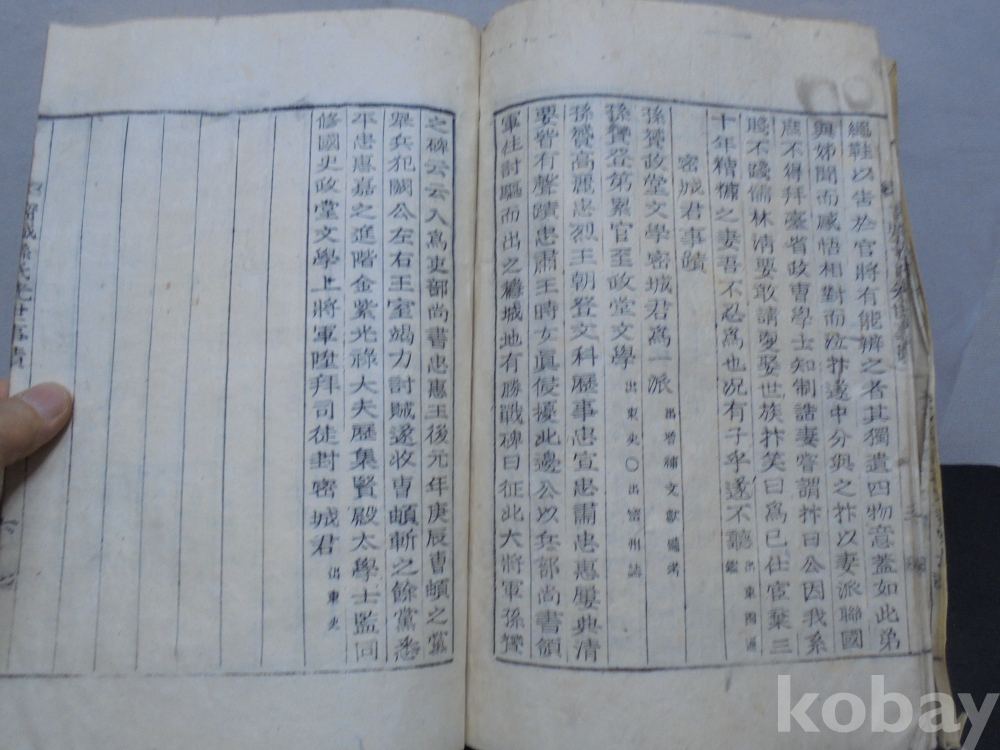 繩鞋以告於官將有能辨之者其獨遺四物意蓋如此弟
與姊聞而感悟相對而泣抃遂中分與之抃以妻派聯國
庶不得拜臺省政曺學士知制誥妻嘗謂抃曰公因我系
賤不踐儒林淸要敢請更娶世族抃笑曰爲已仕宦棄三
十年糟糠之妻吾不忍爲也况有子乎遂不聽 出東國通鑑
密城君事蹟
孫贇政堂文學密城君爲一派 出增補文獻備考
孫贇登第累官至政堂文學 出東史○出密州誌
孫贇高麗忠烈王朝登文科歷事忠宣忠肅忠惠屢典清
要皆有聲蹟忠肅王時女眞侵擾北邊公以兵部尚書領
軍往討驅而出之舊城地有勝戰碑曰征北大將軍孫贇
之碑云云入爲吏部尚書忠惠王後元年庚辰曺頔之黨
擧兵犯闕公左右王室竭力討賊遂收曺頔斬之餘黨悉
平忠惠嘉之進階金紫光祿大夫歷集賢殿太學士監同
修國史政堂文學上將軍陞拜司徒封密城君 出東史
密城孫氏先世事蹟
六
kobay